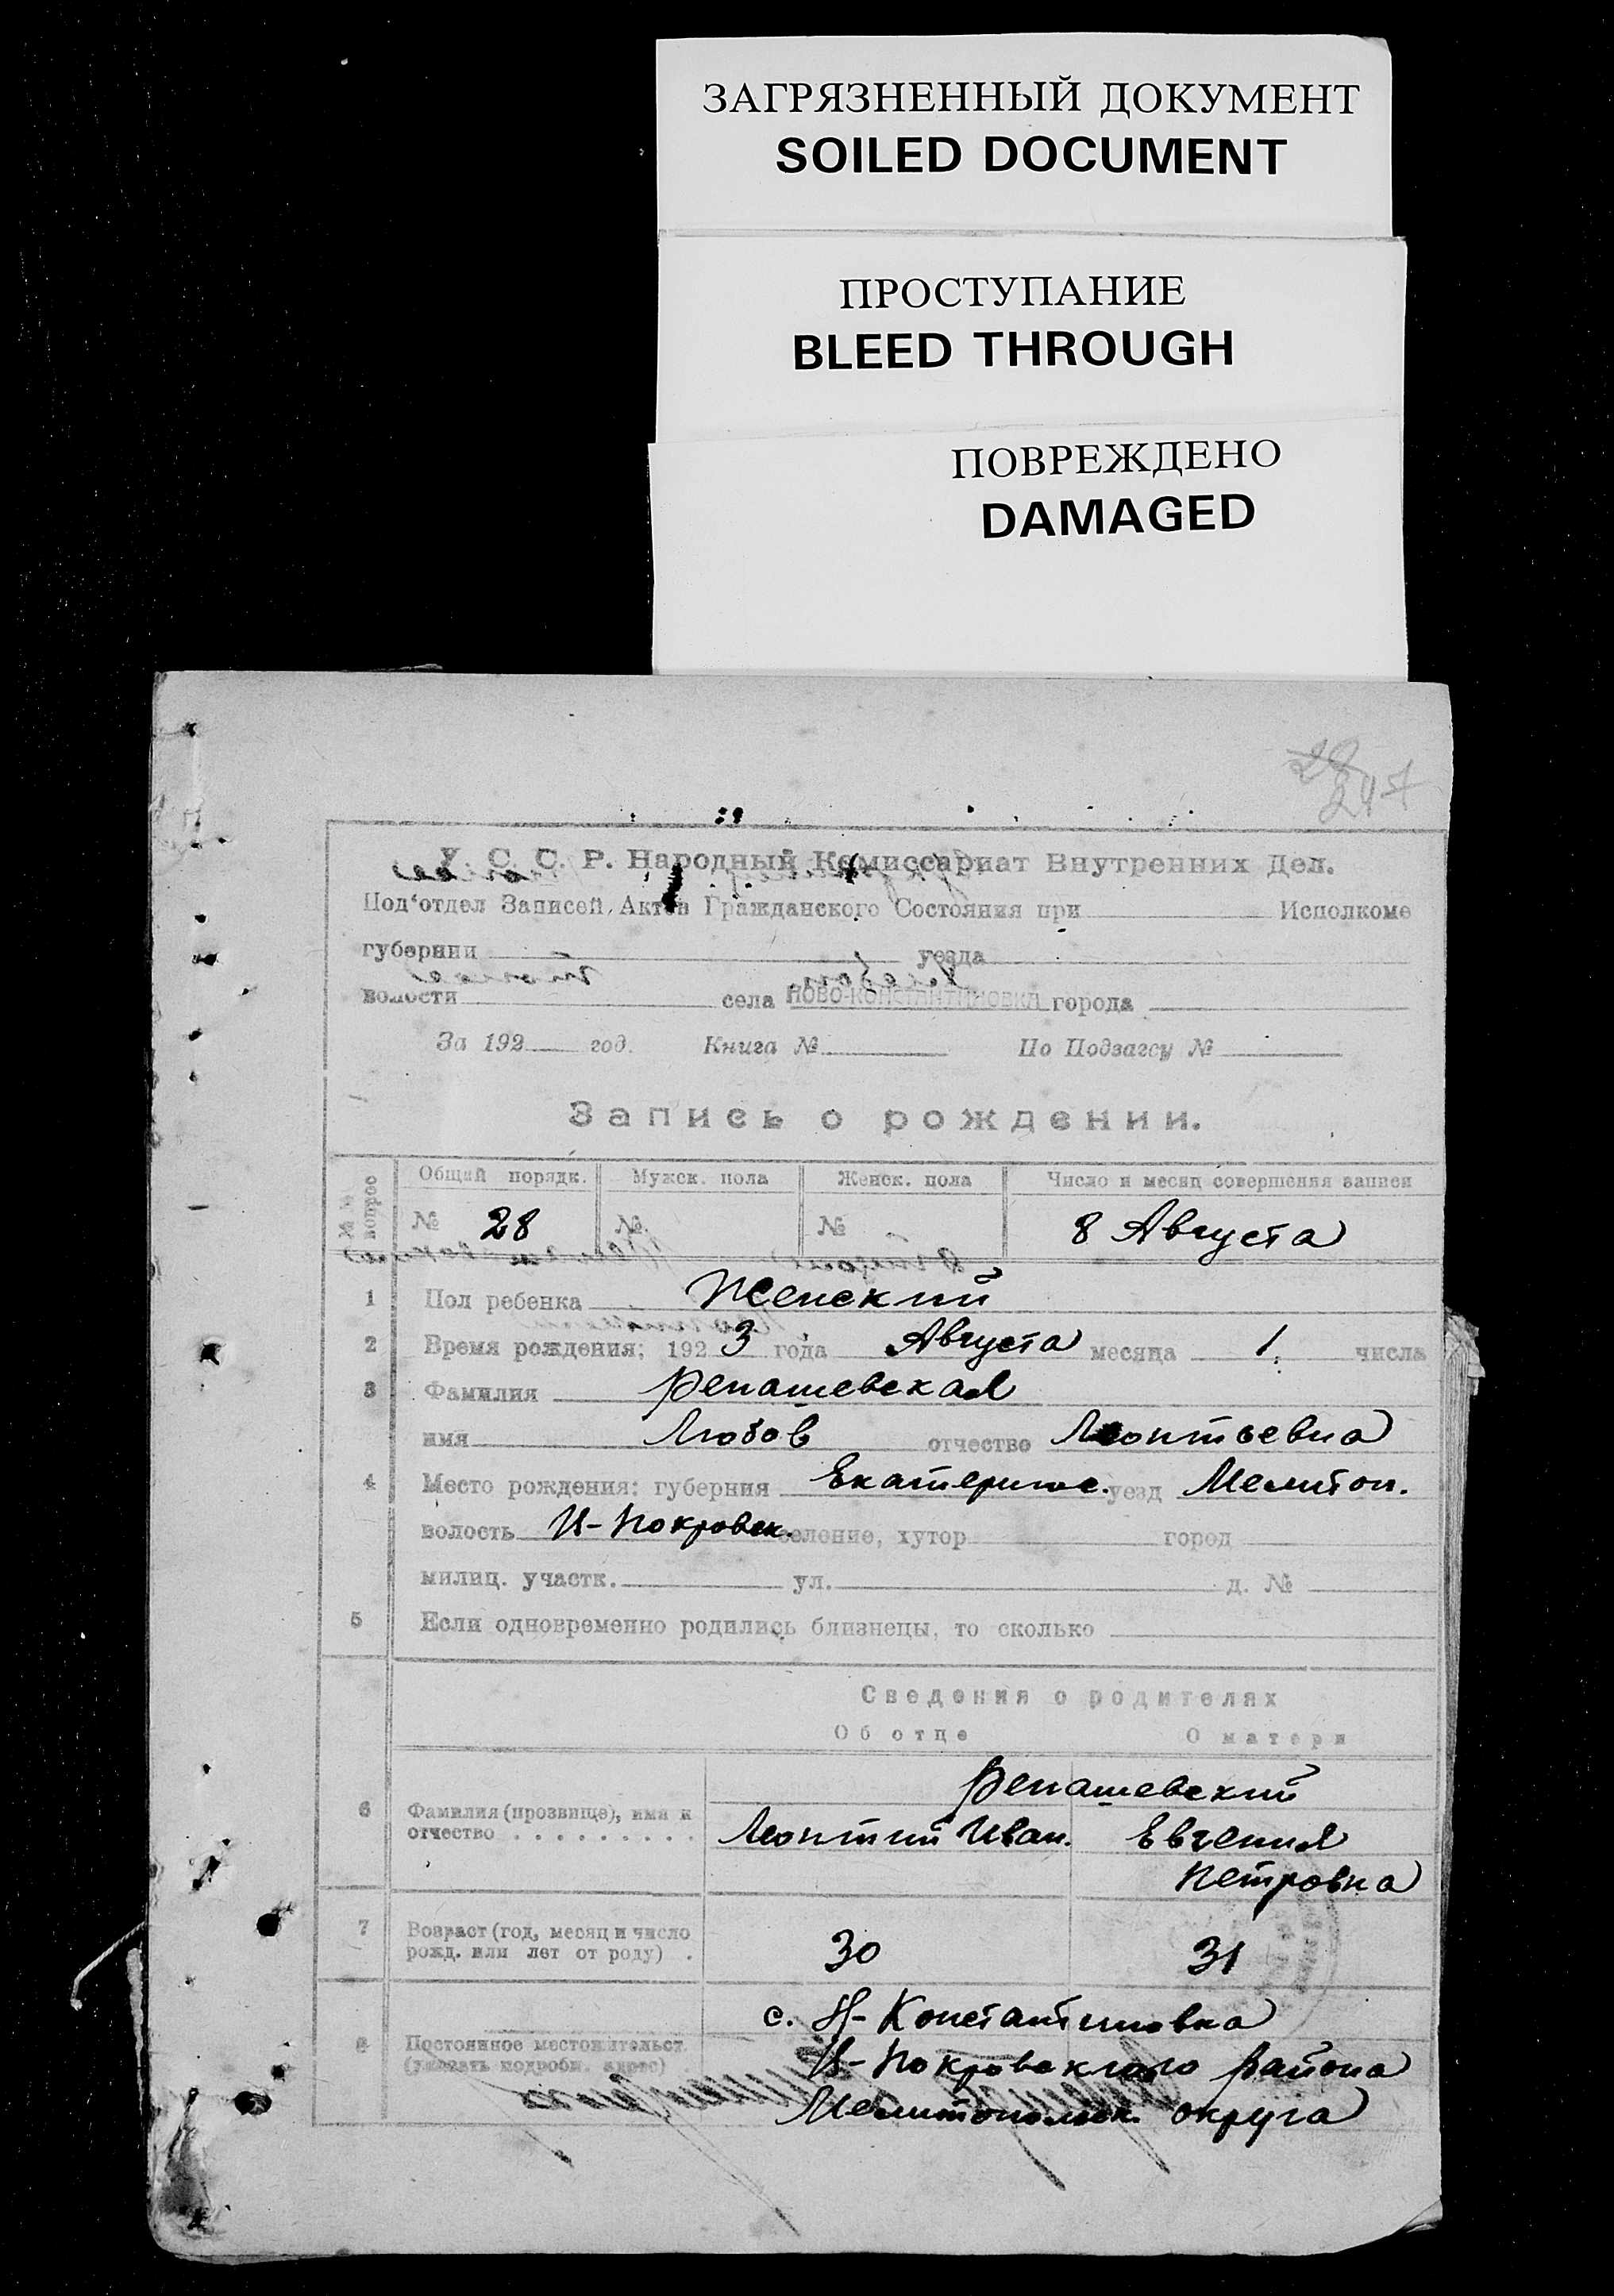 ЗАГРЯЗНЕННЫЙ ДОКУМЕНТ
SOILED DOCUMENT
ПРОСТУПАНИЕ
BLEED THROUGH
ПОВРЕЖДЕНО
DAMAGED
У. С. С. Р. Народный Комиссариат Внутренних Дел.
Под‘отдел Записей Актов Гражданского Состояния при Исполкоме
губернии уезда
волости села НОВО-КОНСТАНТИНОВКА города
За 192 год. Книга № По Подзагсу №
Запись о рождении.
№№ вопрос Общий порядк. Мужск. пола Женск. пола Число и месяц совершения записи
№ 28 № № 8 Августа
1 Пол ребенка Женский
2 Время рождения: 192 3 года Августа месяца 1 числа
3 Фамилия Репашевская
имя Любов отчество Леонтьевна
4 Место рождения: губерния Екатерине. уезд Мелитоп.
волость Н-Покровск. селение, хутор город
милиц. участк. ул. д. №
5 Если одновременно родились близнецы, то сколько
Сведения о родителях
Об отце О матери
Репашевский
6 Фамилия (прозвище), имя и
отчество . . . . . . . . . Леонтий Иван. Евгения
Петровна
7 Возраст (год, месяц и число
рожд. или лет от роду) . 30 31
с. Н-Константиновка
8 Постоянное местожительст.
(указать подробн. адрес) Н-Покровского района
Мелитопольск. округа